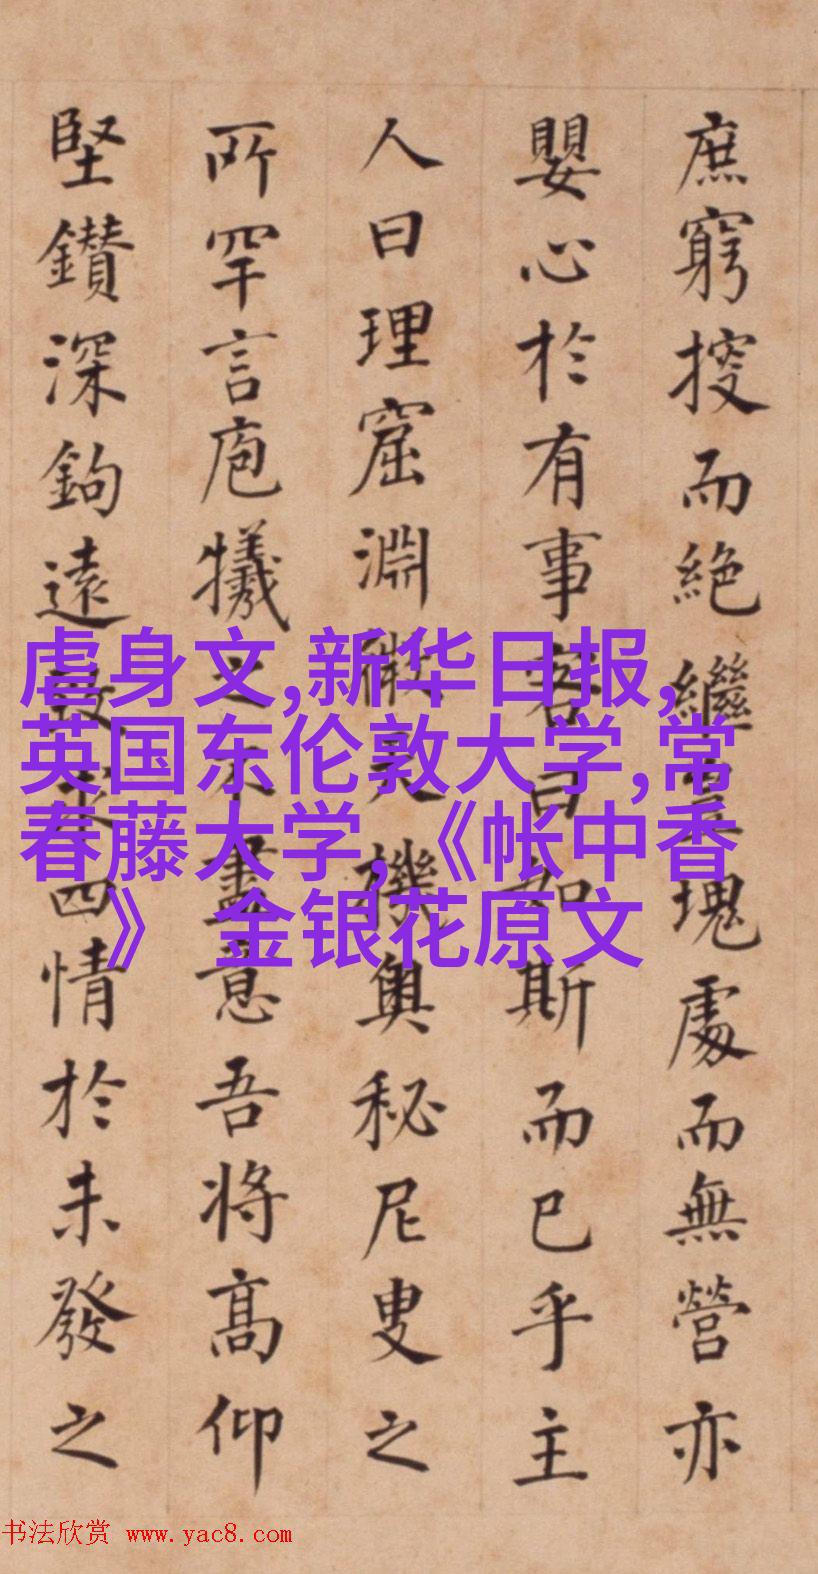 庶窮搜而絶繼塊處而無營亦
嬰心於有事若曰如斯而已乎主
人曰理窟淵微機奥秘尼叟之
所罕言庖犧之不盡意吾將髙仰
堅鑚深鉤遠四情於未發之
虐身文,新华日报,
英国东伦敦大学,常
春藤大学,《帐中香
》 金银花原文
书法欣赏 www.yac8.com